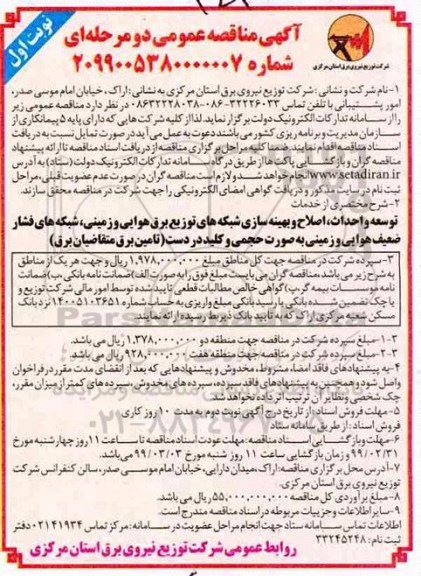 نوبت اول
آگهی مناقصه عمومی دو مرحله‌ای
شماره ۲۰۹۹۰۰۵۳۸۰۰۰۰۰۰۷
شرکت توزیع نیروی برق استان مرکزی
۱-نام شرکت و نشانی : شرکت توزیع نیروی برق استان مرکزی به نشانی: اراک، خیابان امام موسی صدر،
امور پشتیبانی با تلفن تماس ۳۲۲۲۶۰۳۳-۰۸۶ و ۰۸۶۳۲۲۲۸۰۳۸ در نظر دارد مناقصه عمومی زیر
را از سامانه تدارکات الکترونیک دولت برگزار نماید. لذا از کلیه شرکت‌هایی که دارای پایه ۵ پیمانکاری از
سازمان مدیریت و برنامه ریزی کشور می باشند دعوت به عمل می آید در صورت تمایل نسبت به دریافت
اسناد مناقصه اقدام نمایند. ضمنا کلیه مراحل برگزاری مناقصه از دریافت اسناد مناقصه تا ارائه پیشنهاد
مناقصه گران و بازگشایی پاکت ها از طریق درگاه سامانه تدارکات الکترونیک دولت (ستاد) به آدرس
www.setadiran.ir انجام خواهد شد و لازم است مناقصه گران در صورت عدم عضویت قبلی، مراحل
ثبت نام در سایت مذکور و دریافت گواهی امضای الکترونیکی را جهت شرکت در مناقصه محقق سازند.
۲-شرح مختصری از خدمات
توسعه و احداث، اصلاح و بهینه سازی شبکه های توزیع برق هوایی و زمینی، شبکه های فشار
ضعیف هوایی و زمینی به صورت حجمی و کلید در دست (تامین برق متقاضیان برق)
۳-سپرده شرکت در مناقصه جهت کل مناطق مبلغ ۱,۹۷۸,۰۰۰,۰۰۰ ریال و جهت هر یک از مناطق
به شرح زیر می باشد، مناقصه گران می بایست مبلغ فوق را به صورت الف) ضمانت نامه بانکی، ب) ضمانت
نامه موسسات بیمه گر، پ) گواهی خالص مطالبات قطعی تایید شده توسط امور مالی شرکت توزیع و
یا چک تضمین شده بانکی یا رسید بانکی مبلغ واریزی به حساب شماره ۱۴۰۰۵۱۰۳۶۵۱ نزد بانک
مسکن شعبه مرکزی اراک که به تایید بانک ذیربط رسیده ارائه نمایند.
۳-۱-مبلغ سپرده شرکت در مناقصه جهت منطقه دو ۱,۳۷۸,۰۰۰,۰۰۰ ریال می باشد.
۳-۲-مبلغ سپرده شرکت در مناقصه جهت منطقه هفت ۹۲۸,۰۰۰,۰۰۰ ریال می باشد.
۴-به پیشنهادهای فاقد امضا، مشروط، مخدوش و پیشنهادهایی که بعد از انقضای مدت مقرر در فراخوان
واصل شود و همچنین به پیشنهادهای فاقد سپرده، سپرده های مخدوش، سپرده های کمتر از میزان مقرر،
چک شخصی و نظایر آن ترتیب اثر داده نخواهد شد.
۵-مهلت فروش اسناد: از تاریخ درج آگهی نوبت دوم به مدت ۱۰ روز کاری
فروش اسناد : از طریق سامانه ستاد
۶-مهلت و بازگشایی اسناد مناقصه: مهلت عودت اسناد مناقصه تا ساعت ۱۱ روز چهارشنبه مورخ
۹۹/۰۲/۳۱ و زمان بازگشایی ساعت ۱۱ روز شنبه مورخ ۹۹/۰۳/۰۳ می باشد.
۷-آدرس محل برگزاری مناقصه: اراک، میدان دارایی، خیابان امام موسی صدر، سالن کنفرانس شرکت
توزیع نیروی برق استان مرکزی.
۸-مبلغ برآوردی کل مناقصه ۵۵,۰۰۰,۰۰۰,۰۰۰ ریال می باشد.
۹-سایر اطلاعات و جزییات مربوطه در اسناد مناقصه مندرج است.
اطلاعات تماس سامانه ستاد جهت انجام مراحل عضویت در سامانه: مرکز تماس ۰۲۱۴۱۹۳۴ دفتر
ثبت نام : ۳۳۲۴۵۲۴۸
روابط عمومی شرکت توزیع نیروی برق استان مرکزی